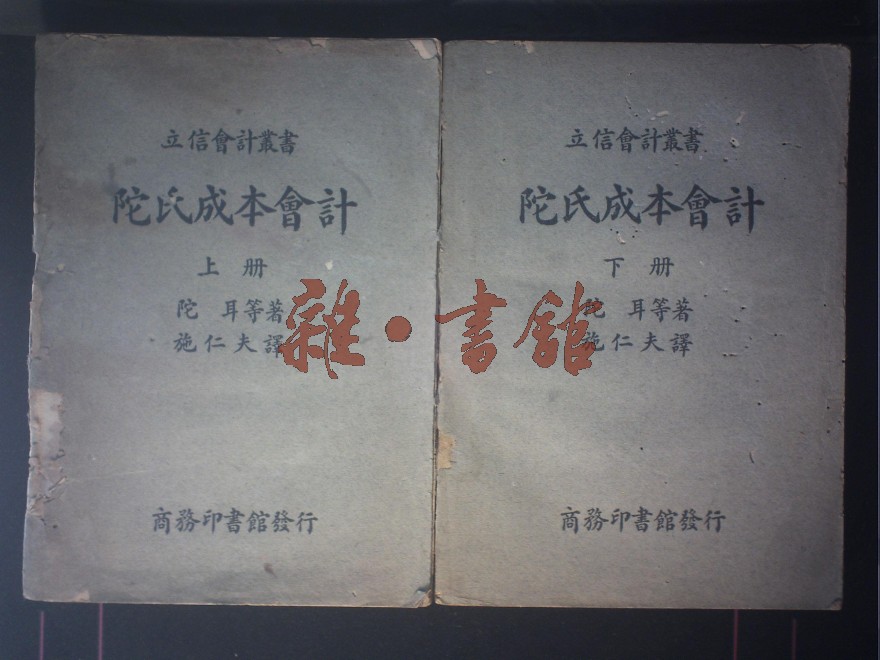 立信會計叢書
陀氏成本會計
上册
陀耳等著
施仁夫譯
商務印書館發行
立信會計叢書
陀氏成本會計
下册
陀耳等著
施仁夫譯
商務印書館發行
雜·書館